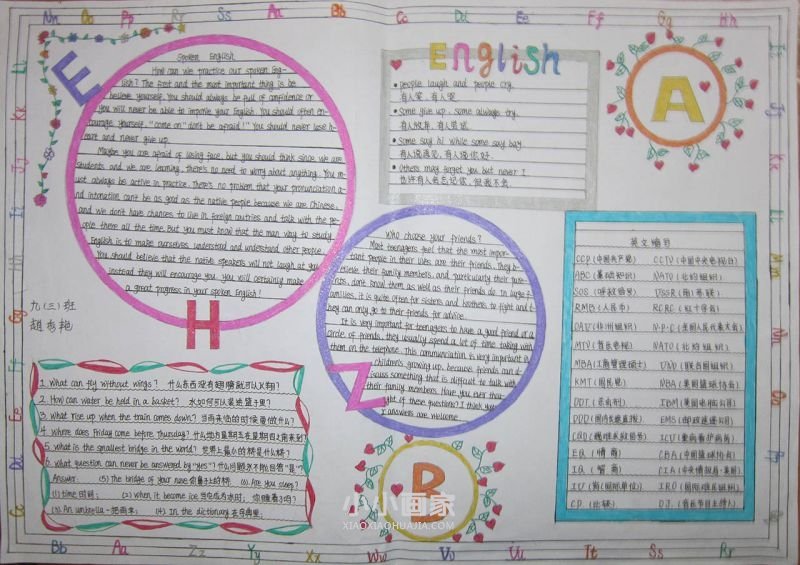 Nn Oo Pp Rr Ss Aa Bb Cc Dd Ee Ff Gg Hh
E
Spoken English
How can we practice our spoken Eng-
lish? The first and the most important thing is be
believe yourself. You should always be full of confidence or
you will never be able to improve your English. You should often en-
courage yourself, "come on" don't be afraid!" You should never lose h-
eart and never give up.
Maybe you are afraid of losing face, but you should think since we are
students and we are learning, there's no need to worry about anything. You m-
ust always be active in practice. There's no problem that your pronunciation a-
nd intonation can't be as good as the native people because we are Chinese,
and we don't have chances to live in foreign coutries and talk with the pe-
ople there all the time. But you must know that the man way to study
English is to make ourselves understand and understand other people
You should believe that the native speakers will not laugh at you
instead they will encourage you. you will certainly make
a great progress in your spoken English!
H
九(三)班
English
people laugh and people cry.
有人笑,有人哭
Some give up, some always try.
有人放弃,有人尝试
Some say hi while some say bay
有人说遇见,有人说你好.
Others may forget you but never I
也许有人会忘记你,但我不会.
A
Who choose your friends?
Most teenagers feel that the most impor-
tant people in their lives are their friends. They b-
elieve their family members, and particularly their pare-
ents, don't know them as well as their friends do. In large f-
amilies, it is quite often for sisters and brothers to fight and t-
hey can only go to their friends for advice.
It is very important for teenagers to have a good friend or a
circle of friends, they usually spend a lot of time talking with
them on the telephone. This communication is very important in
children's growing up, because friends can d-
iscuss something that is difficult to talk with
their family members. Have you ever thou-
ght of these questions? I think you
r answers are welcome
Z
英文缩写
CCP (中国共产党) CCTV (中国中央电视台)
ABC (基础知识) NATO (北约组织)
SOS (呼救信号) USSR (前苏联)
RMB (人民币) RCRC (红十字会)
OAU (非洲组织) N.P.C (全国人民代表大会)
MTV (音乐电视) NATO (北约组织)
MBA (工商管理硕士) UNO (联合国组织)
KMT (国民党) NBA (美国篮球协会)
DDT (杀虫剂) IBM (美国电脑公司)
DDD (国内长途直拨) EMS (邮政速递公司)
ICU (重病看护病房)
EQ (情商) CBA (中国篮球协会)
IQ (智商) CIA (中央情报局·美国)
IU (国际单位) IRO (国际难民组织)
CD (比较) DJ. (音乐节目主持人)
1. What can fly without wings? 什么东西没有翅膀就可以飞翔?
2. How can water be held in a basket? 水如何可以装进篮子里?
3. What rise up when the train comes down? 当雨来临的时候带什么?
4. Where does Friday come before Thursday? 什么地方星期五在星期四之前来到?
5. what is the smallest bridge in the world? 世界上最小的桥是什么桥?
6. what question can never be answered by "yes"? 什么问题永不能回答"是"?
Answer: (5) The bridge of your nose 你鼻子上的桥 (6) Are you sleep?
(1) time 时间; (2) when it become ice 当它成为冰时, 你睡着了吗?
(3) An umbrella 一把雨伞; (4). In the dictionary 在字典里.
R
小小画家
XIAOXIAOHUAJIA.COM
Bb Aa Zz Yy Xx Ww Vv Uu Tt Ss Rr